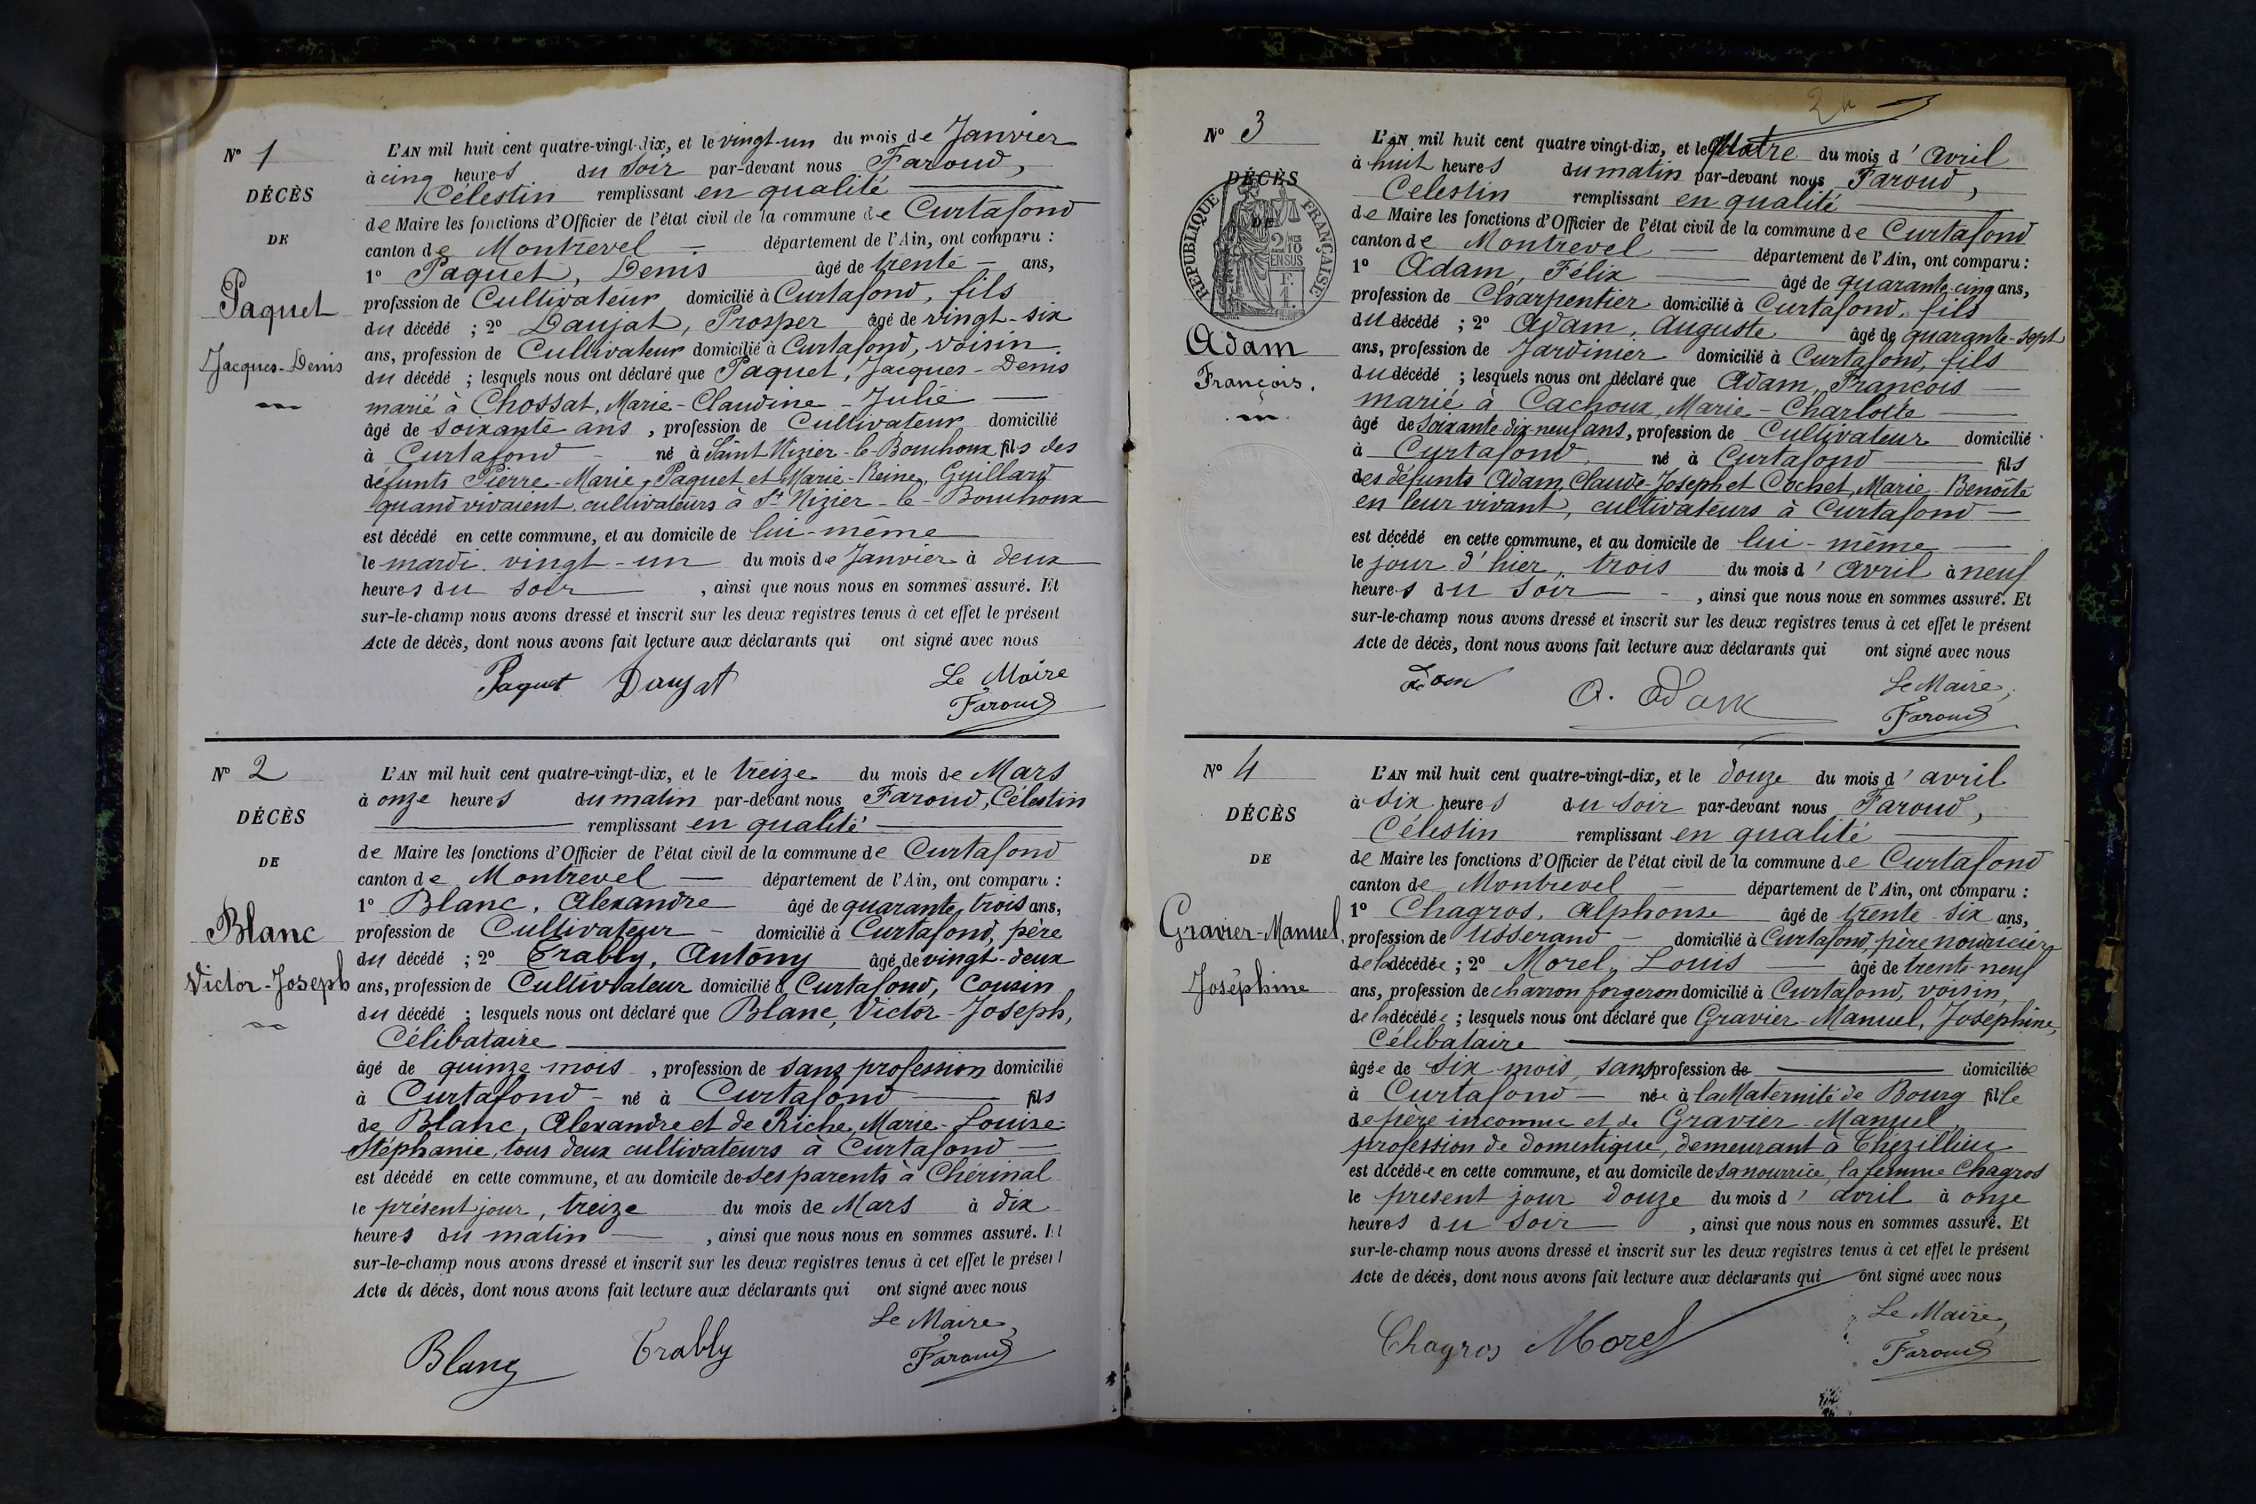 N° 1
DÉCÈS
DE
Paquet
Jacques-Denis
L'AN mil huit cent quatre-vingt-dix, et le vingt-un du mois de Janvier
à cinq heures du soir par-devant nous Faroud,
Célestin remplissant en qualité
de Maire les fonctions d'Officier de l'état civil de la commune de Curtafond
canton de Montrevel département de l'Ain, ont comparu :
1° Paquet, Denis âgé de trente ans,
profession de Cultivateur domicilié à Curtafond, fils
du décédé ; 2° Daujat, Prosper âgé de vingt-six
ans, profession de Cultivateur domicilié à Curtafond, voisin
du décédé ; lesquels nous ont déclaré que Paquet, Jacques-Denis
marié à Chossat, Marie-Claudine-Julie
âgé de soixante ans, profession de Cultivateur domicilié
à Curtafond né à Saint Nizier-le-Bouchoux fils des
défunts Pierre-Marie, Paquet et Marie-Reine, Guillard
quand vivaient, cultivateurs à St Nizier-le-Bouchoux
est décédé en cette commune, et au domicile de lui-même
le mardi vingt-un du mois de Janvier à deux
heures du soir, ainsi que nous nous en sommes assuré. Et
sur-le-champ nous avons dressé et inscrit sur les deux registres tenus à cet effet le présent
Acte de décès, dont nous avons fait lecture aux déclarants qui ont signé avec nous
Paquet Daujat Le Maire
Faroud
N° 2
DÉCÈS
DE
Blanc
Victor-Joseph
L'AN mil huit cent quatre-vingt-dix, et le treize du mois de Mars
à onze heures du matin par-devant nous Faroud, Célestin
remplissant en qualité
de Maire les fonctions d'Officier de l'état civil de la commune de Curtafond
canton de Montrevel département de l'Ain, ont comparu :
1° Blanc, Alexandre âgé de quarante trois ans,
profession de Cultivateur domicilié à Curtafond, père
du décédé ; 2° Trably, Antony âgé de vingt-deux
ans, profession de Cultivateur domicilié à Curtafond, Cousin
du décédé ; lesquels nous ont déclaré que Blanc, Victor-Joseph,
Célibataire
âgé de quinze mois, profession de sans profession domicilié
à Curtafond né à Curtafond fils
de Blanc, Alexandre et de Riche, Marie-Louise
Stéphanie, tous deux cultivateurs à Curtafond
est décédé en cette commune, et au domicile de ses parents à Chérinal
le présent jour, treize du mois de Mars à dix
heures du matin, ainsi que nous nous en sommes assuré. Et
sur-le-champ nous avons dressé et inscrit sur les deux registres tenus à cet effet le présent
Acte de décès, dont nous avons fait lecture aux déclarants qui ont signé avec nous
Le Maire,
Blanc Trably Faroud
N° 3
DÉCÈS
DE
RÉPUBLIQUE FRANÇAISE
Adam
François.
L'AN mil huit cent quatre vingt-dix, et le quatre du mois d'avril
à huit heures du matin par-devant nous Faroud,
Celestin remplissant en qualité
de Maire les fonctions d'Officier de l'état civil de la commune de Curtafond
canton de Montrevel département de l'Ain, ont comparu :
1° Adam, Félix âgé de quarante-cinq ans,
profession de Charpentier domicilié à Curtafond, fils
du décédé ; 2° Adam, Auguste âgé de quarante-sept
ans, profession de Jardinier domicilié à Curtafond, fils
du décédé ; lesquels nous ont déclaré que Adam, François
marié à Cachoux, Marie-Charlotte
âgé de soixante-dix neuf ans, profession de Cultivateur domicilié
à Curtafond né à Curtafond fils
des défunts Adam, Claude-Joseph et Cochet, Marie-Benoîte
en leur vivant, cultivateurs à Curtafond
est décédé en cette commune, et au domicile de lui-même
le jour d'hier, trois du mois d'avril à neuf
heures du soir, ainsi que nous nous en sommes assuré. Et
sur-le-champ nous avons dressé et inscrit sur les deux registres tenus à cet effet le présent
Acte de décès, dont nous avons fait lecture aux déclarants qui ont signé avec nous
Adam A. Adam Le Maire,
Faroud
N° 4
DÉCÈS
DE
Gravier-Manuel,
Joséphine
L'AN mil huit cent quatre-vingt-dix, et le douze du mois d'avril
à six heures du soir par-devant nous Faroud,
Célestin remplissant en qualité
de Maire les fonctions d'Officier de l'état civil de la commune de Curtafond
canton de Montrevel département de l'Ain, ont comparu :
1° Chagros, Alphonse âgé de trente-six ans,
profession de tisserand domicilié à Curtafond, père nourricier
de la décédée ; 2° Morel, Louis âgé de trente-neuf
ans, profession de charron forgeron domicilié à Curtafond, voisin,
de la décédée ; lesquels nous ont déclaré que Gravier-Manuel, Joséphine,
Célibataire
âgée de six mois, sans profession de domiciliée
à Curtafond née à la Maternité de Bourg fille
de père inconnu et de Gravier-Manuel,
profession de domestique, demeurant à Thézillieu
est décédée en cette commune, et au domicile de sa nourrice, la femme Chagros
le présent jour douze du mois d'avril à onze
heures du soir, ainsi que nous nous en sommes assuré. Et
sur-le-champ nous avons dressé et inscrit sur les deux registres tenus à cet effet le présent
Acte de décès, dont nous avons fait lecture aux déclarants qui ont signé avec nous
Le Maire,
Chagros Morel Faroud